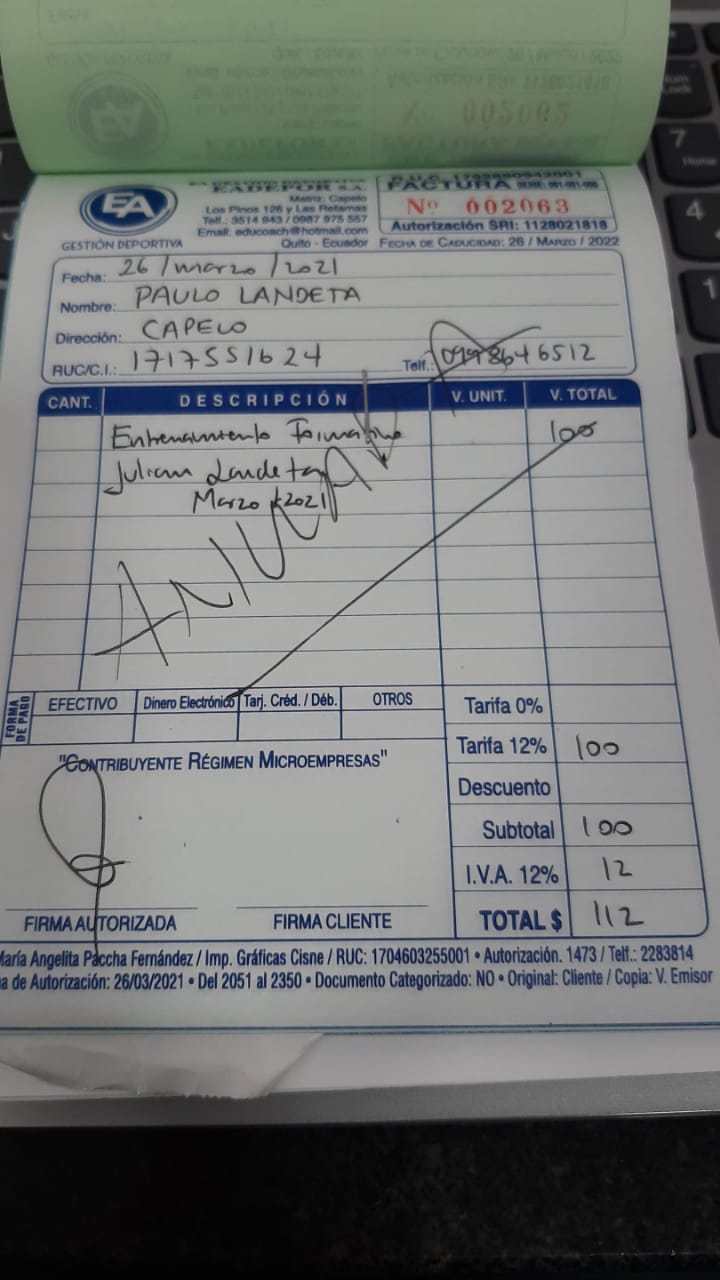 EA
GESTIÓN DEPORTIVA
EADEPOR S.A.
Matriz: Capelo
Los Pinos 126 y Las Retamas
Telf.: 3514 943 / 0987 975 557
Email: educoach@hotmail.com
Quito - Ecuador
FACTURA
Nº 002063
Autorización SRI: 1128021818
FECHA DE CADUCIDAD: 26 / MARZO / 2022
Fecha: 26/marzo/2021
Nombre: PAULO LANDETA
Dirección: CAPELO
RUC/C.I.: 1717551624 Telf.: 0998646512
CANT. DESCRIPCIÓN V. UNIT. V. TOTAL
Entrenamiento Formativo 100
Julian Landeta
Marzo 2021
FORMA DE PAGO
EFECTIVO Dinero Electrónico Tarj. Créd. / Déb. OTROS
Tarifa 0%
Tarifa 12% 100
Descuento
Subtotal 100
I.V.A. 12% 12
TOTAL $ 112
"CONTRIBUYENTE RÉGIMEN MICROEMPRESAS"
FIRMA AUTORIZADA FIRMA CLIENTE
María Angelita Paccha Fernández / Imp. Gráficas Cisne / RUC: 1704603255001 • Autorización. 1473 / Telf.: 2283814
de Autorización: 26/03/2021 • Del 2051 al 2350 • Documento Categorizado: NO • Original: Cliente / Copia: V. Emisor